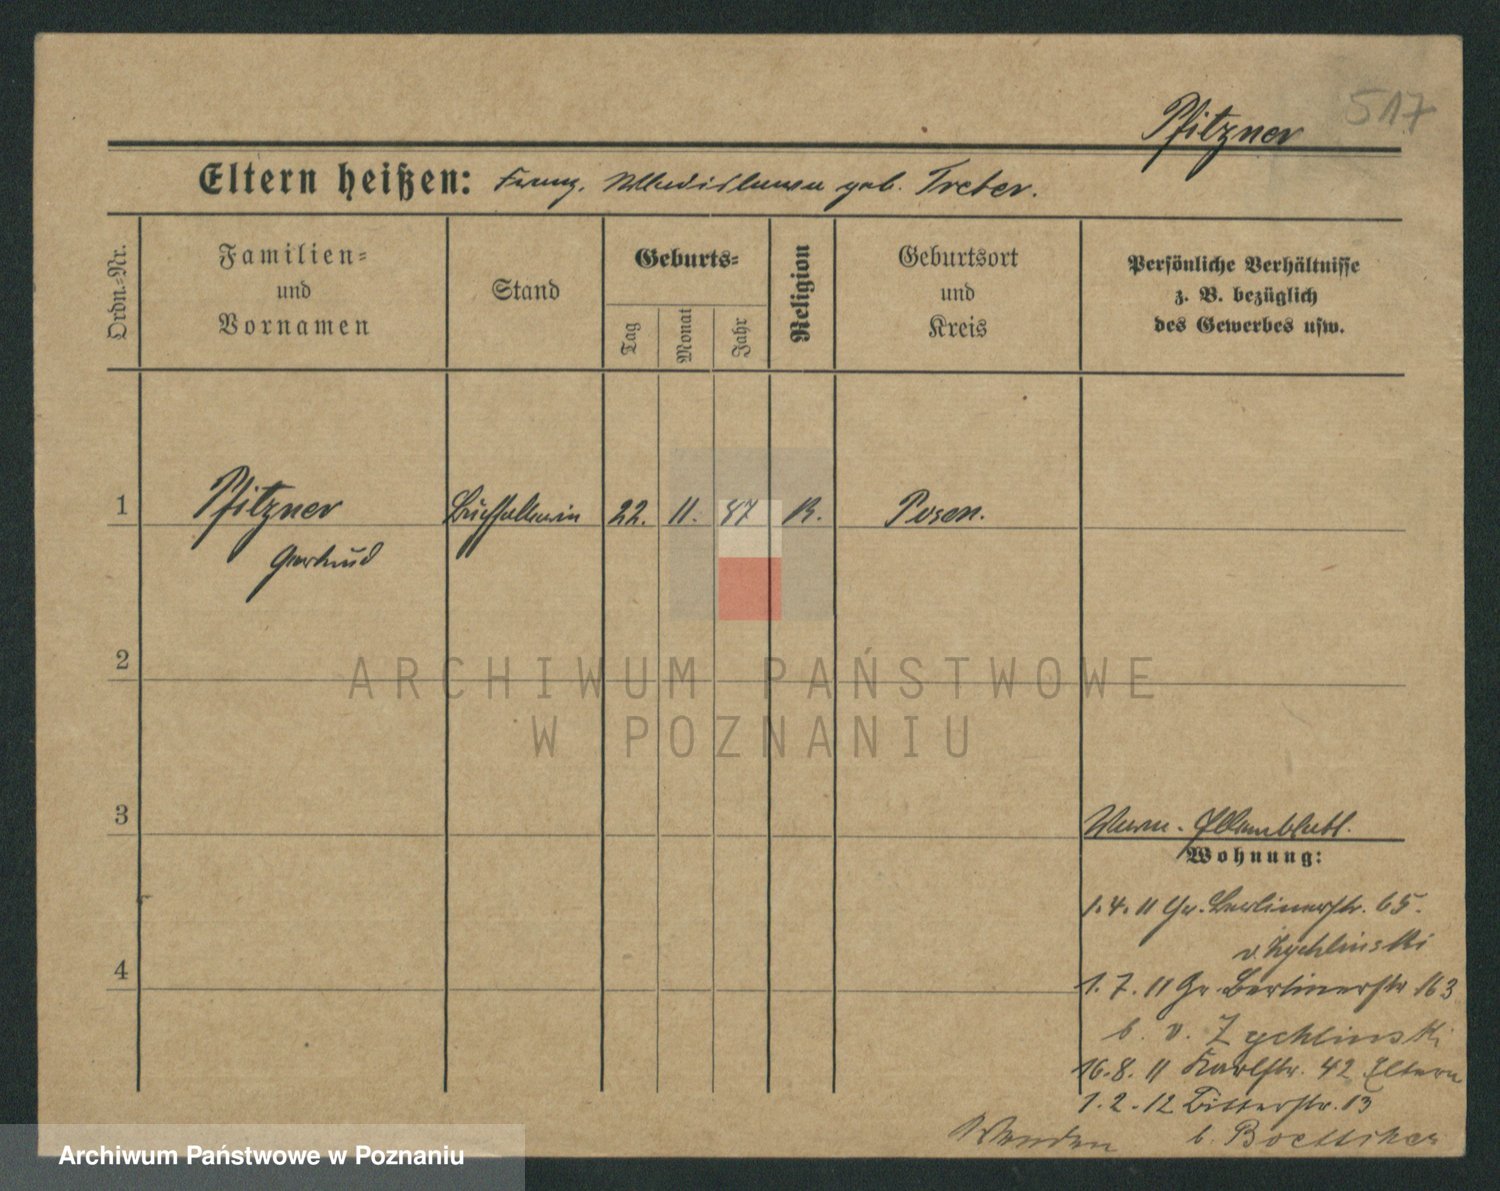 517
Pfitzner
Eltern heißen: Franz, Wladislawa geb. Treber.
Ordn.-Nr.
Familien-
und
Vornamen
Stand
Geburts-
Tag
Monat
Jahr
Religion
Geburtsort
und
Kreis
Persönliche Verhältnisse
z. B. bezüglich
des Gewerbes usw.
1 Pfitzner Buchhalterin 22. 11. 87 K. Posen.
Gertrud
2
ARCHIWUM PAŃSTWOWE
W POZNANIU
3
Wohnung:
1.4.11 Gr. Berlinerstr. 65.
v. Zychlinski
4
1.7.11 Gr. Berlinerstr. 63
b. v. Zychlinski
16.8.11 Karlstr. 42 Eltern
1.2.12 Ritterstr. 13
Wenden b. Boettcher
Archiwum Państwowe w Poznaniu